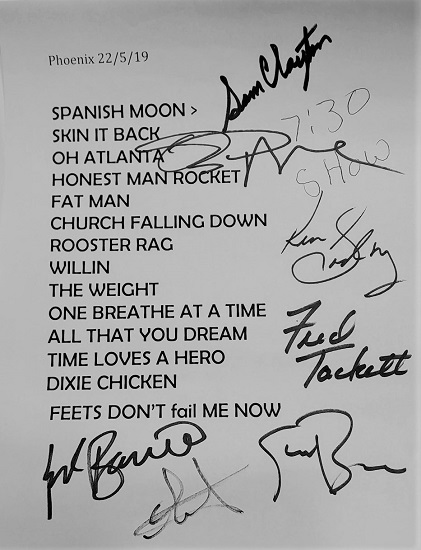 Phoenix 22/5/19
Sam Clayton
SPANISH MOON >
SKIN IT BACK
7:30
SHOW
OH ATLANTA
HONEST MAN ROCKET
FAT MAN
CHURCH FALLING DOWN
ROOSTER RAG
WILLIN
THE WEIGHT
ONE BREATHE AT A TIME
ALL THAT YOU DREAM
TIME LOVES A HERO
DIXIE CHICKEN
Fred
Tackett
FEETS DON'T fail ME NOW